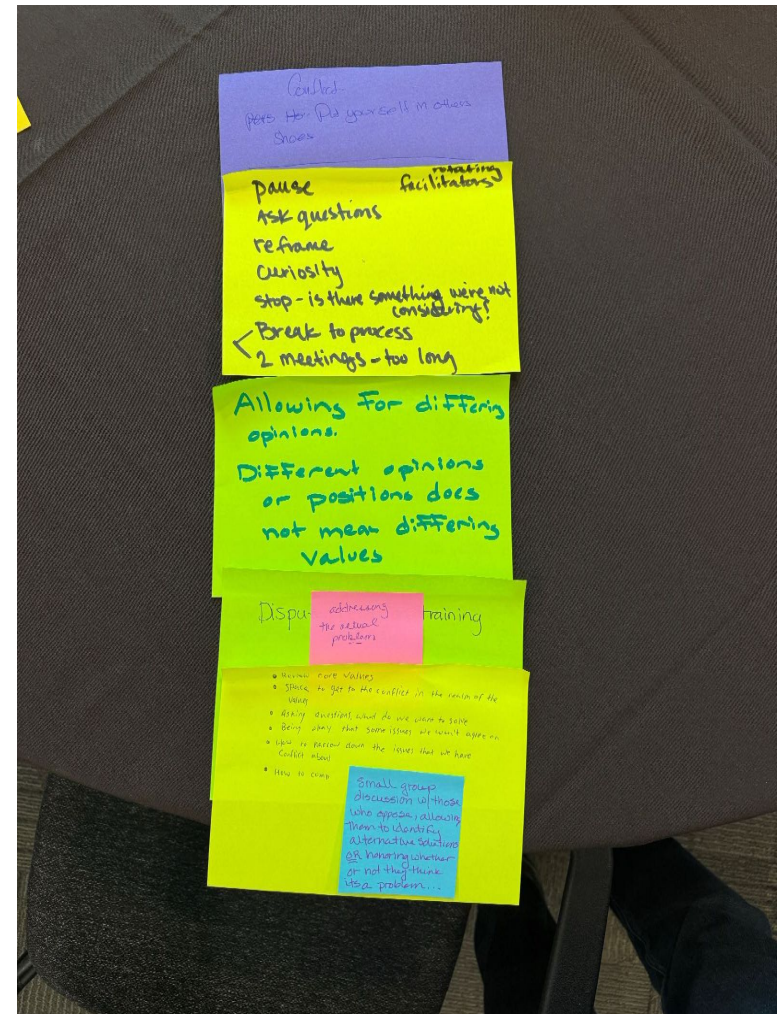 Conflict
Put yourself in others
shoes
rotating
pause facilitators
Ask questions
reframe
curiosity
stop - is there something we're not
considering?
Break to process
2 meetings - too long
Allowing for differing
opinions.
Different opinions
or positions does
not mean differing
values
Dispu
training
addressing
the actual
problems
Review core values
to get to the conflict in the realm of the
values
Asking questions, what do we want to solve
Being okay that some issues we won't agree on
How to narrow down the issues that we have
conflict about
How to
Small group
discussion w/ those
who oppose, allowing
them to identify
alternative solutions
OR honoring whether
or not they think
its a problem...